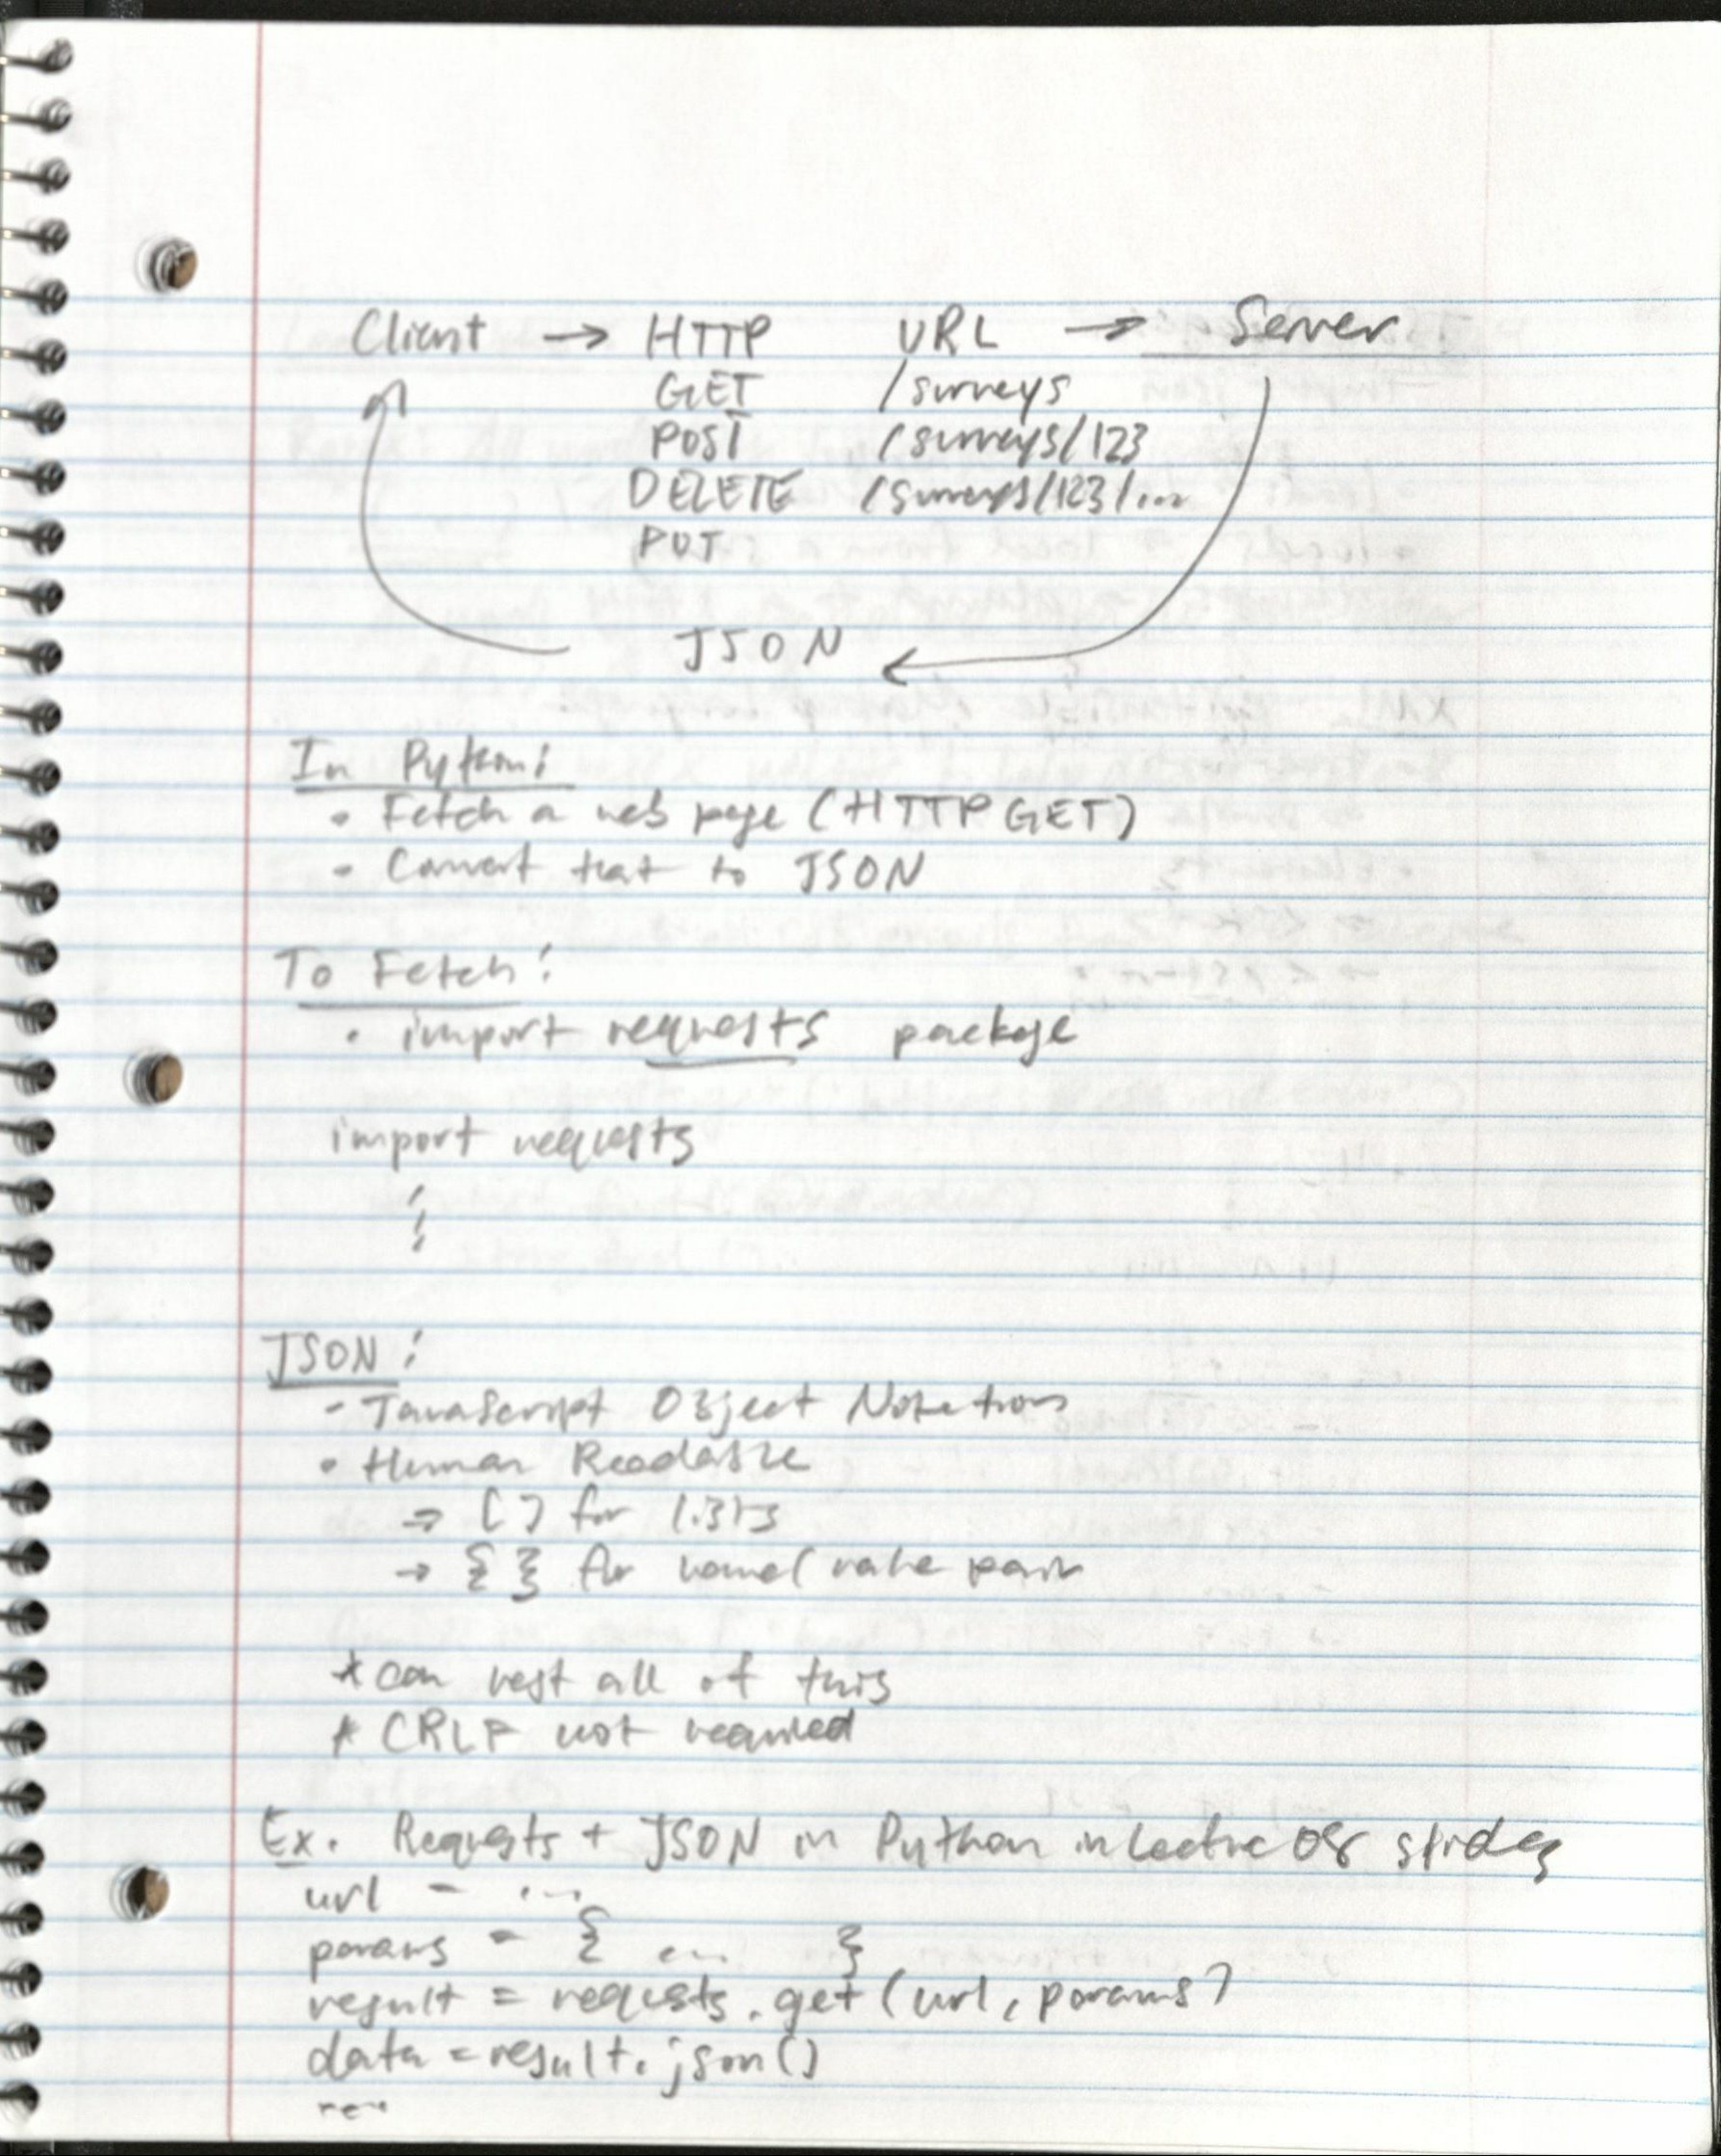 Client → HTTP URL → Server
GET /surveys
POST /surveys/123
DELETE /surveys/123/...
PUT
JSON
In Python:
• Fetch a web page (HTTP GET)
• Convert that to JSON
To Fetch:
• import requests package
import requests
⋮
JSON:
- JavaScript Object Notation
• Human Readable
→ [ ] for lists
→ { } for name/value pair
* can nest all of this
* CRLF not required
Ex. Requests + JSON in Python in Lecture 08 slides
url = ...
params = { ... }
result = requests.get(url, params)
data = result.json()
...